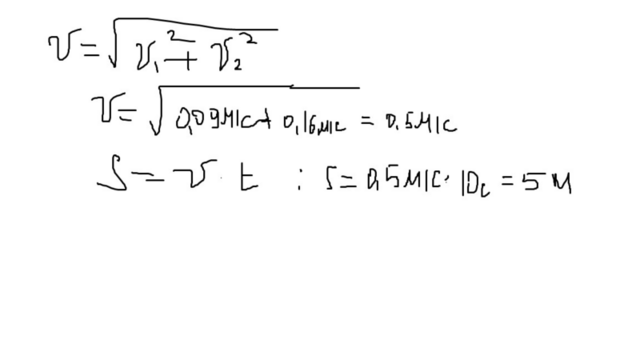 v=√v₁²+v₂²
v=√0,09м/с+0,16м/с=0,5м/с
S=v·t : S=0,5м/с·10с=5м